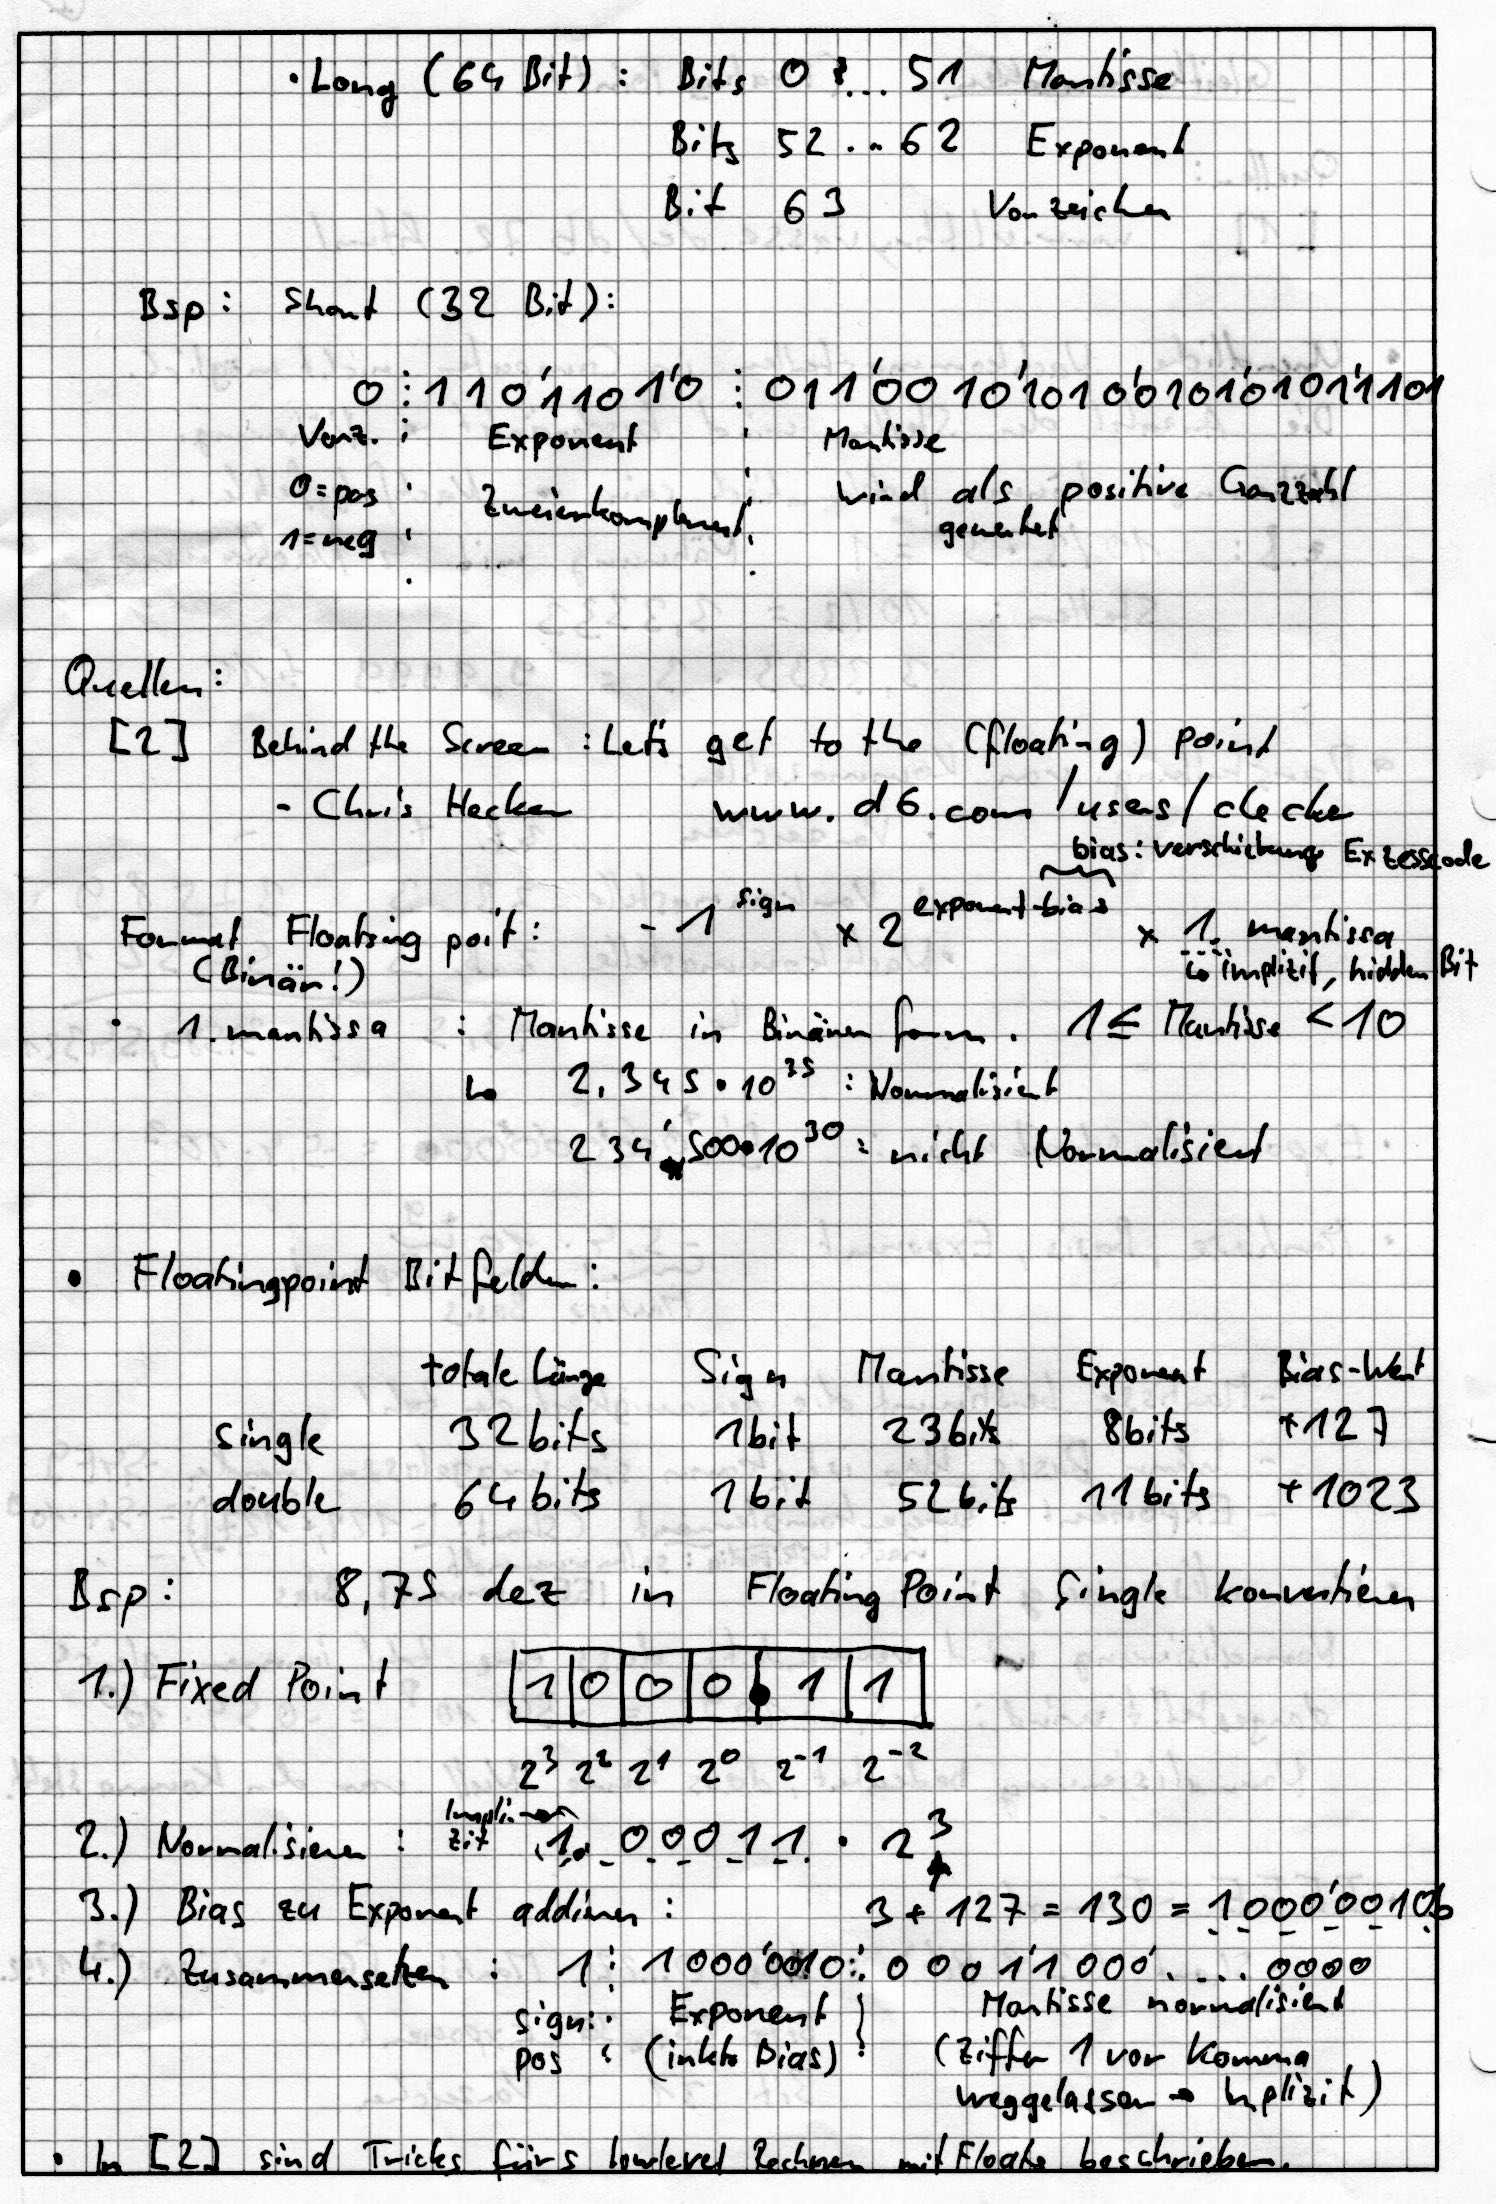 • Long (64 Bit) : Bits 0 ... 51 Mantisse
Bits 52 ... 62 Exponent
Bit 63 Vorzeichen
Bsp : Short (32 Bit) :
0 ⋮ 110'11010'0 ⋮ 011'0010'1010'0101'0101'1101
Vorz. Exponent Mantisse
0=pos Zweierkomplement wird als positive Ganzzahl
1=neg gewertet
Quellen :
[2] Behind the Screen : Let's get to the (floating) point
- Chris Hecker www.d6.com/users/checker
bias: verschiebung Exzesscode
Format Floating poit : -1^sign × 2^exponent-bias × 1. mantissa
(Binär!) ↳ implizit, hidden Bit
• 1.mantissa : Mantisse in Binärer form. 1 ≤ Mantisse < 10
↳ 2,345 • 10^35 : Normalisiert
234'500•10^30 : nicht Normalisiert
• Floatingpoint Bitfelder :
totale Länge Sign Mantisse Exponent Bias-Wert
single 32bits 1bit 23bits 8bits +127
double 64bits 1bit 52bits 11bits +1023
Bsp : 8,75 dez in Floating Point Single konvertieren
1.) Fixed Point 1 0 0 0 . 1 1
2^3 2^2 2^1 2^0 2^-1 2^-2
2.) Normalisieren : Implizit → 1. 00011 • 2^3
3.) Bias zu Exponent addieren : 3 + 127 = 130 = 1000'0010b
4.) Zusammensetzen : 1 ⋮ 1000'0010 ⋮ 00011000' .... 0000
sign: Exponent Mantisse normalisiert
pos (inkl. Bias) (Ziffer 1 vor Komma
weggelassen → Implizit)
• In [2] sind Tricks fürs lowlevel Rechnen mit Floats beschrieben.